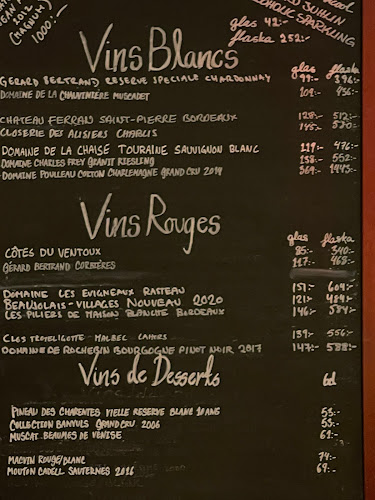 2012
(MAGNUM)
1000:-
ALCOHOLIC SPARKLING
glas 42:-
flaska 252:-
Vins Blancs
glas flaska
GERARD BERTRAND RESERVE SPECIALE CHARDONNAY 99:- 396:-
DOMAINE DE LA CHAUVINIÈRE MUSCADET 109:- 436:-
CHATEAU FERRAN SAINT-PIERRE BORDEAUX 128:- 512:-
CLOSERIE DES ALISIERS CHABLIS 145:- 580:-
DOMAINE DE LA CHAISE TOURAINE SAUVIGNON BLANC 119:- 476:-
DOMAINE CHARLES FREY GRANIT RIESLING 138:- 552:-
DOMAINE POULLEAU CORTON CHARLEMAGNE GRAND CRU 2019 369:- 1445:-
Vins Rouges
glas flaska
CÔTES DU VENTOUX 85:- 340:-
GÉRARD BERTRAND CORBIÈRES 117:- 468:-
DOMAINE LES EVIGNEAUX RASTEAU 151:- 604:-
BEAUJOLAIS-VILLAGES NOUVEAU 2020 121:- 484:-
LES PILIERS DE MAISON BLANCHE BORDEAUX 146:- 584:-
CLOS TROTELIGOTTE MALBEC CAHORS 139:- 556:-
DOMAINE DE ROCHEBIN BOURGOGNE PINOT NOIR 2017 147:- 588:-
Vins de Desserts 6cl
PINEAU DES CHARENTES VIELLE RESERVE BLANC 10 ANS 55:-
COLLECTION BANYULS GRAND CRU 2006 55:-
MUSCAT BEAUMES DE VENISE 61:-
MACVIN ROUGE/BLANC 74:-
MOUTON CADELL SAUTERNES 2016 69:-